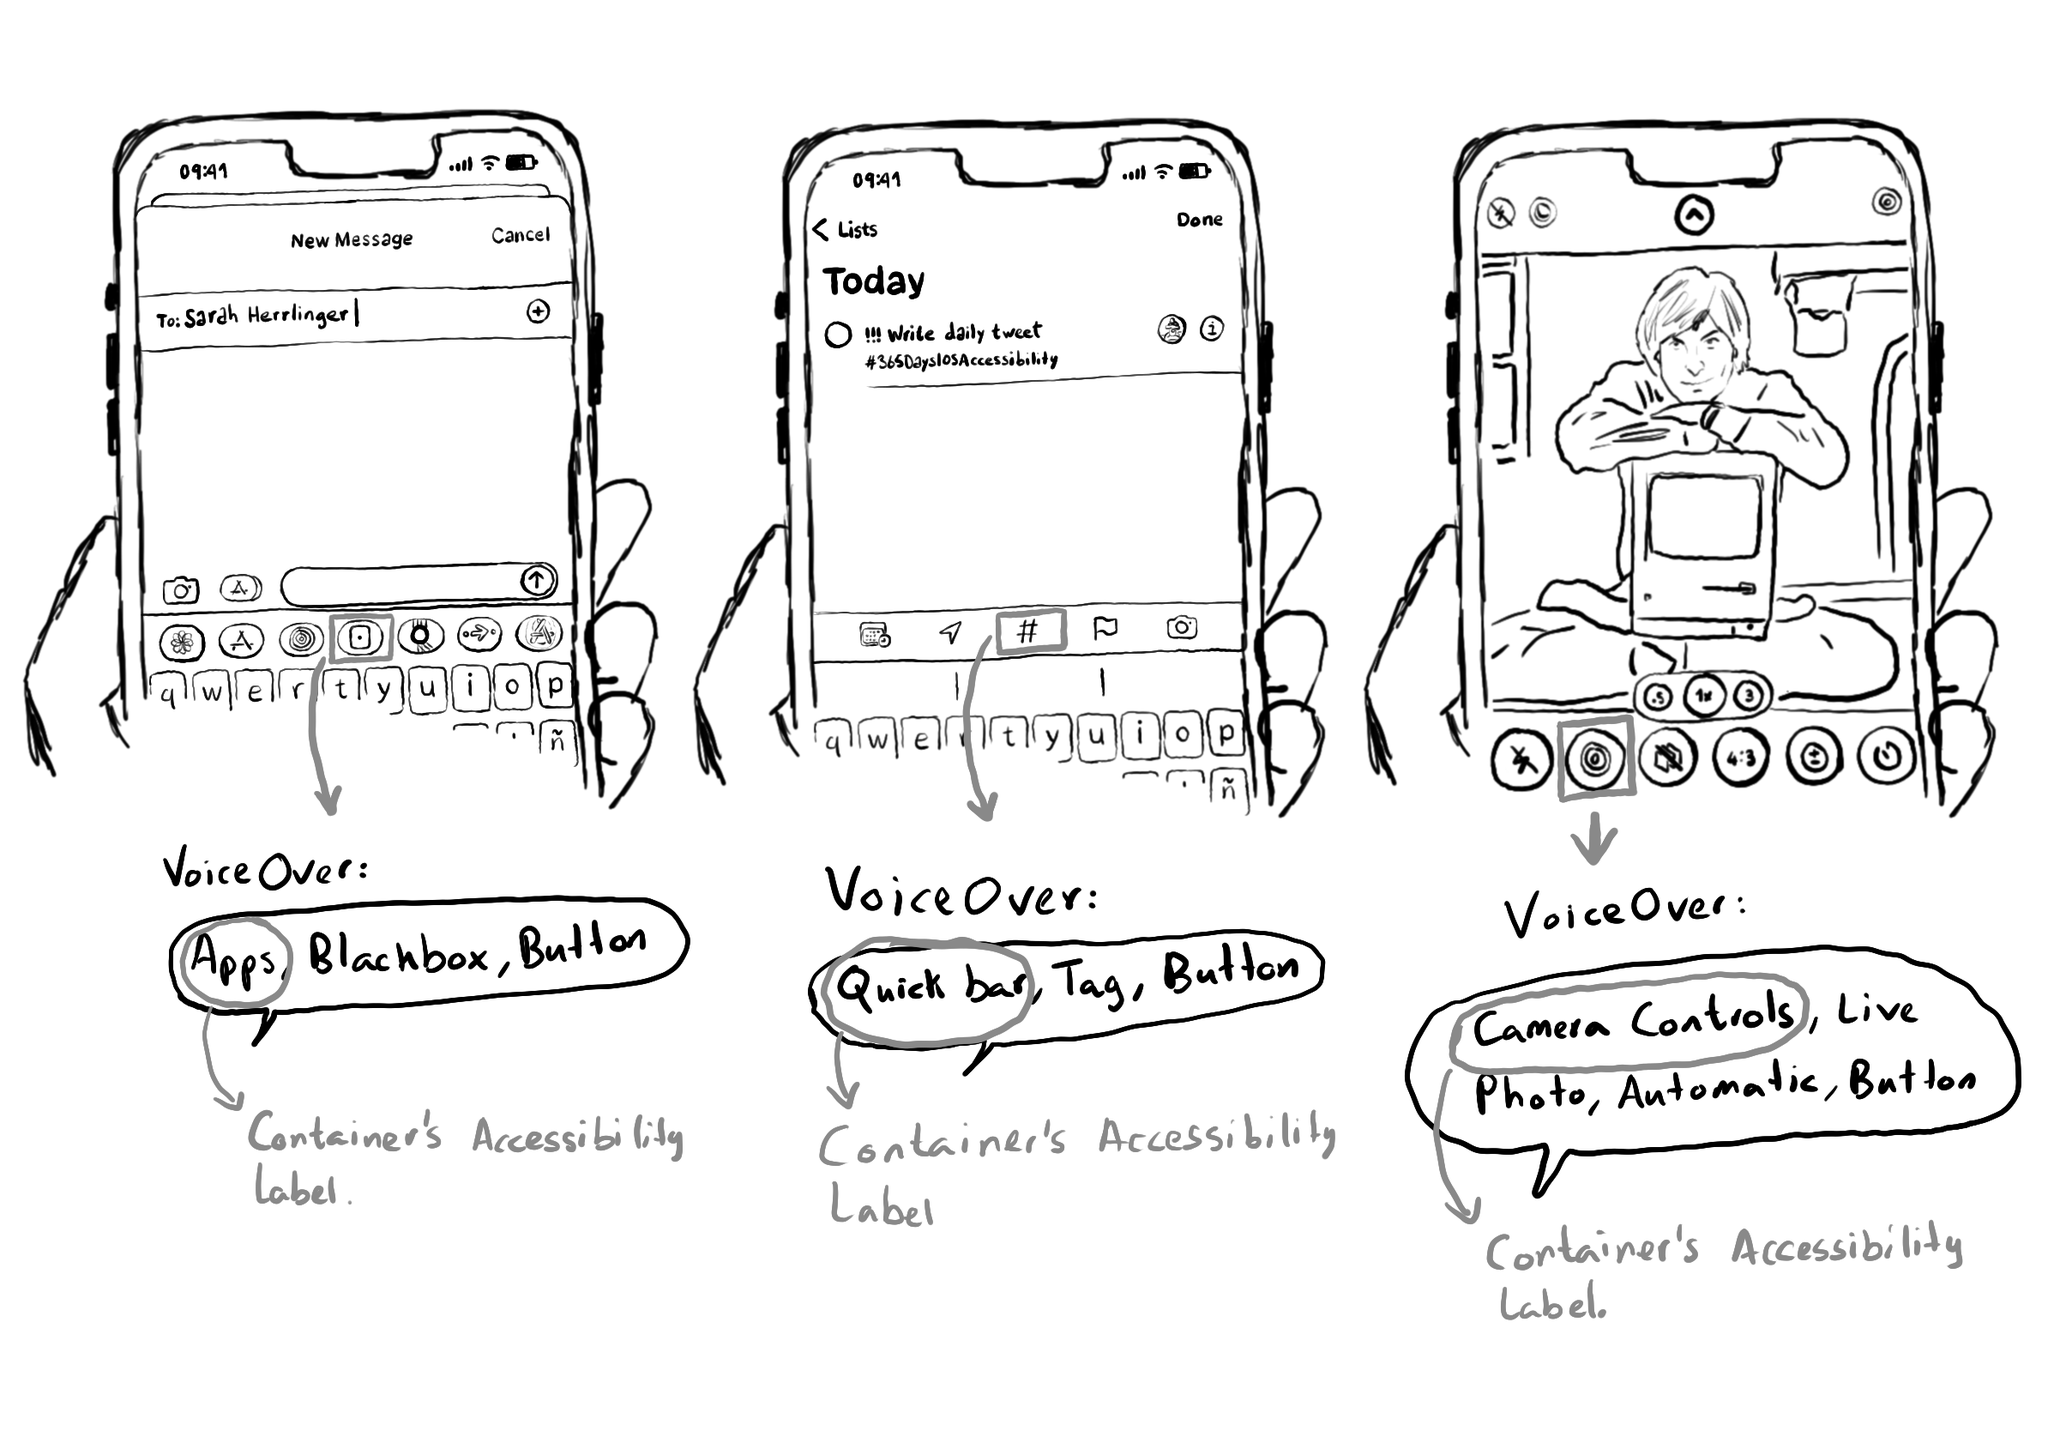 09:41
New Message
Cancel
To: Sarah Herrlinger
q w e r t y u i o p
ñ
VoiceOver:
Apps, Blackbox, Button
Container's Accessibility
Label.
09:41
Lists
Done
Today
!!! Write daily tweet
#365DaysIOSAccessibility
#
q w e r t y u i o p
ñ
VoiceOver:
Quick bar, Tag, Button
Container's Accessibility
Label
.5 1x 3
4:3
VoiceOver:
Camera Controls, Live
Photo, Automatic, Button
Container's Accessibility
Label.